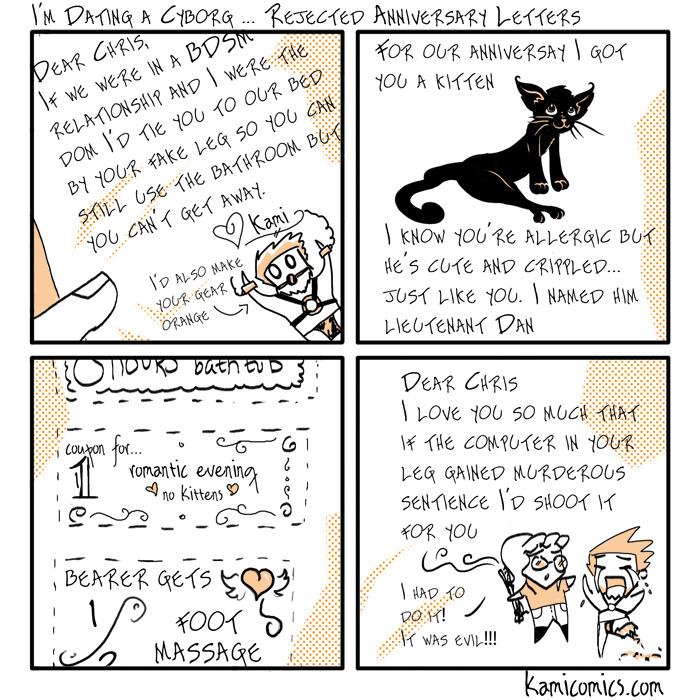 I'm Dating a Cyborg ... Rejected Anniversary Letters
Dear Chris,
If we were in a BDSM
relationship and I were the
dom I'd tie you to our bed
by your fake leg so you can
still use the bathroom but
you can't get away.
Kami
I'd also make
your gear
orange
For our anniversay I got
you a kitten
I know you're allergic but
he's cute and crippled...
just like you. I named him
Lieutenant Dan
hours bathtub
coupon for...
1 romantic evening
no kittens
Bearer gets
1 foot
massage
Dear Chris
I love you so much that
if the computer in your
leg gained murderous
sentience I'd shoot it
for you
I had to
do it!
It was evil!!!
kamicomics.com